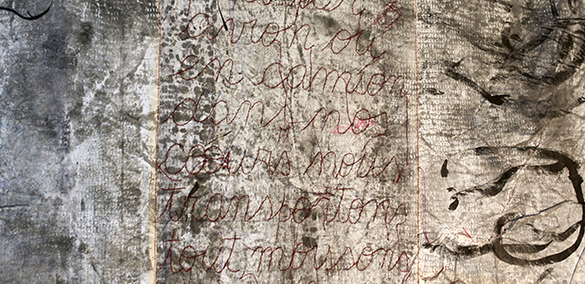 avion ou
en camion
dans nos
cœurs nous
transportons
tout moissons